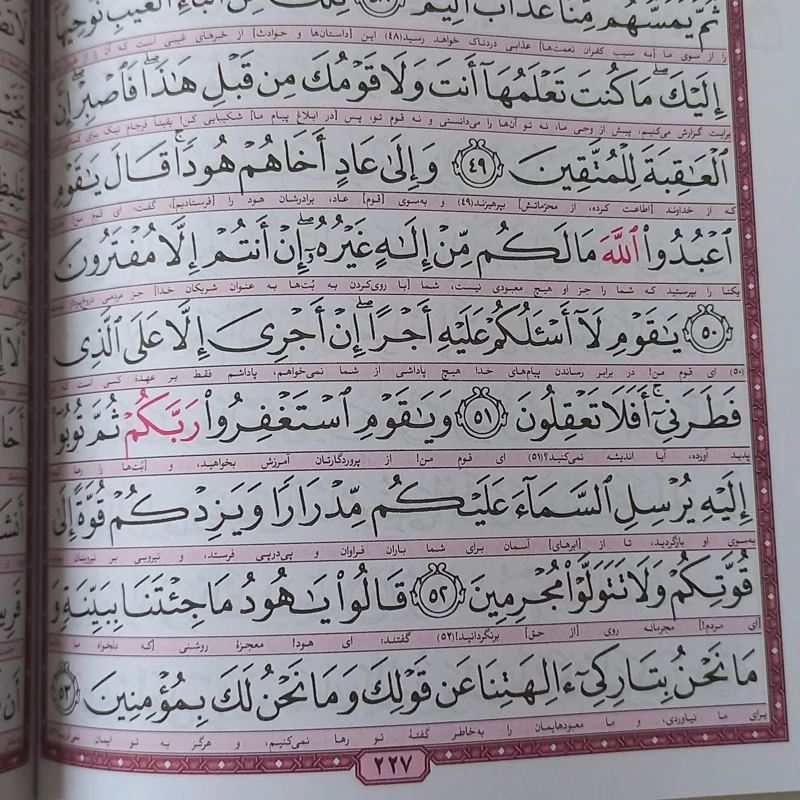 ثُمَّ يَمَسُّهُم مِّنَّا عَذَابٌ أَلِيمٌ ﴿٤٨﴾ تِلْكَ مِنْ أَنْبَاءِ الْغَيْبِ نُوحِيهَا
را از سوی ما [به سبب کفران نعمت‌ها] عذابی دردناک خواهد رسید(۴۸) این [داستان‌ها و حوادث] از خبرهای غیبی است که آن را از
إِلَيْكَ ۖ مَا كُنتَ تَعْلَمُهَآ أَنتَ وَلَا قَوْمُكَ مِن قَبْلِ هَٰذَا ۖ فَاصْبِرْ ۖ إِنَّ
برایت گزارش می‌کنیم، پیش از وحی ما، نه تو آن‌ها را می‌دانستی و نه قوم تو، پس [در ابلاغ پیام ما] شکیبایی کن! یقیناً فرجام نیک برای
الْعَاقِبَةَ لِلْمُتَّقِينَ ﴿٤٩﴾ وَإِلَىٰ عَادٍ أَخَاهُمْ هُودًا ۚ قَالَ يَا قَوْمِ
که از خداوند [اطاعت کرده، از محرّماتش] بپرهیزند(۴۹) و به‌سوی [قوم] عاد، برادرشان هود را [فرستادیم]، گفت: ای قوم من!
اعْبُدُوا اللَّهَ مَا لَكُم مِّنْ إِلَٰهٍ غَيْرُهُ ۖ إِنْ أَنتُمْ إِلَّا مُفْتَرُونَ
یکتا را بپرستید که شما را جز او هیچ معبودی نیست، شما [با روی‌کردن به بُت‌ها به عنوان شریکان خدا] جز مردمی دروغ‌پرداز
﴿٥٠﴾ يَا قَوْمِ لَآ أَسْئَلُكُمْ عَلَيْهِ أَجْرًا ۖ إِنْ أَجْرِىَ إِلَّا عَلَى الَّذِى
(۵۰) ای قوم من! در برابر رساندن پیام‌های خدا هیچ پاداشی از شما نمی‌خواهم، پاداشم فقط بر عهدهٔ کسی است که
فَطَرَنِىٓ ۚ أَفَلَا تَعْقِلُونَ ﴿٥١﴾ وَيَا قَوْمِ اسْتَغْفِرُوا رَبَّكُمْ ثُمَّ تُوبُوٓا
پدید آورده، آیا اندیشه نمی‌کنید؟(۵۱) ای قوم من! از پروردگارتان آمرزش بخواهید، و [بُت‌ها را رها
إِلَيْهِ يُرْسِلِ السَّمَآءَ عَلَيْكُم مِّدْرَارًا وَيَزِدْكُمْ قُوَّةً إِلَىٰ
به‌سوی او بازگردید، تا از [ابرهای] آسمان برای شما باران فراوان و پی‌درپی فرستد، و نیرویی بر نیرویتان
قُوَّتِكُمْ وَلَا تَتَوَلَّوْا مُجْرِمِينَ ﴿٥٢﴾ قَالُوا يَا هُودُ مَا جِئْتَنَا بِبَيِّنَةٍ وَ
[ای مردم!] مجرمانه روی [از حق] برنگردانید!(۵۲) گفتند: ای هود! معجزهٔ روشنی [که دلخواه ما
مَا نَحْنُ بِتَارِكِىٓ ءَالِهَتِنَا عَن قَوْلِكَ وَمَا نَحْنُ لَكَ بِمُؤْمِنِينَ ﴿٥٣﴾
برای ما نیاوردی، و ما معبودهایمان را به‌خاطر گفتهٔ تو رها نمی‌کنیم، و هرگز به تو ایمان
۲۲۷